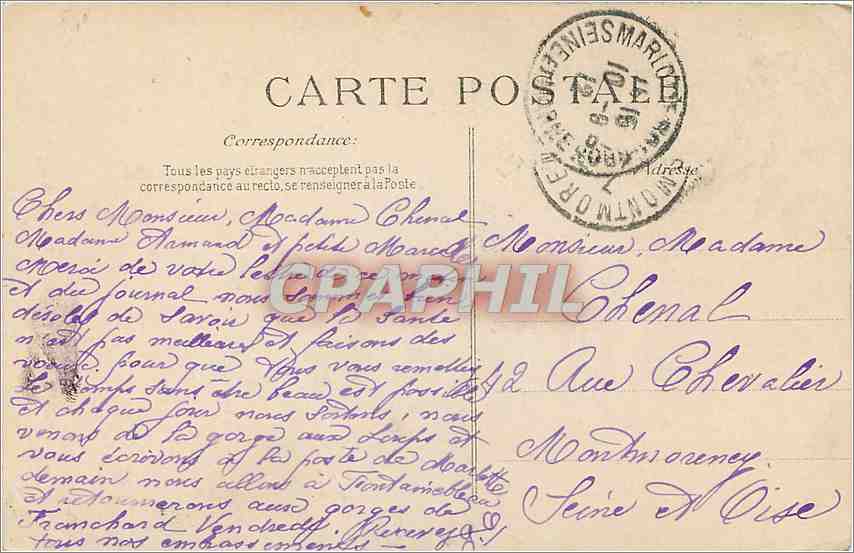 CARTE POSTALE
Correspondance:
Tous les pays étrangers n'acceptent pas la
correspondance au recto, se renseigner à la Poste
Adresse
Chers Monsieur, Madame Chenal
Madame Armand et petit Marcel
Merci de votre lettre de ce matin
et du journal nous sommes bien
désolés de savoir que la santé
n'est pas meilleure et faisons des
voeux pour que vous vous remettiez
le temps sans être beau est possible
et chaque jour nous sortons, nous
venons de la gorge aux Loups et
vous écrivons à la poste de Marlotte
demain nous allons à Fontainebleau
et retournerons aux gorges de
Franchard Vendredi. Recevez
tous nos embrassements
Monsieur, Madame
Chenal
12 Rue Chevalier
Montmorency
Seine et Oise
CPAPHIL